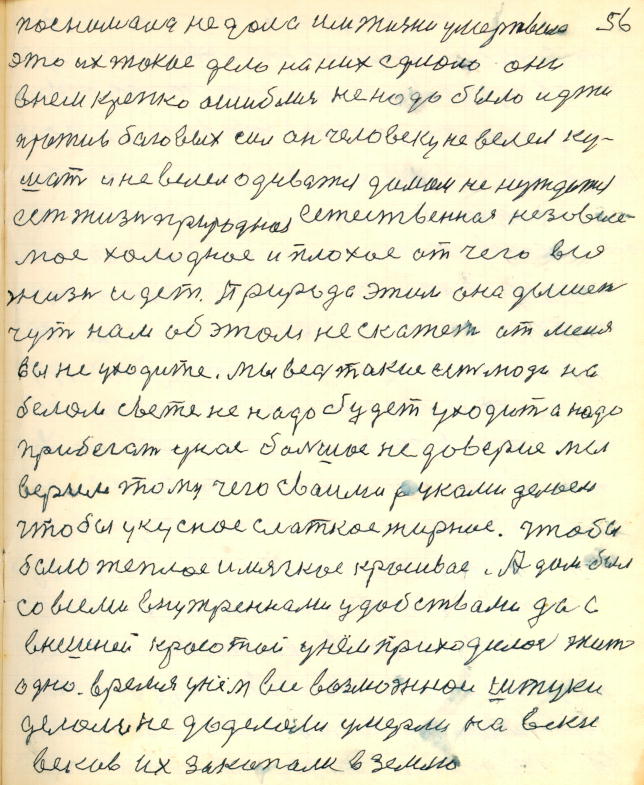 поснимала не дола им жизни умертвила 56
это их такое дело на них сдиоло они
внем крепко ошиблися не надо было идти
против баговых сил он человеку не велел ку-
шат и не велел одеватя домом не нуждатя
ест жизн природная естественная незовиси-
мое холодное и плохое от чего вся
жизн идет. Природа этим она дышет
чут нам об этом не скажет от меня
вы не уходите. мы вед такие ест люди на
белом свете не надо будет уходит а надо
прибегат унас большое не доверие мы
верим тому чего сваими руками делаем
чтобы укусное слаткое жирное. чтобы
было теплое и мягкое красивае. А дом был
совсеми внутреннами удобствами да с
внешней красотой унём приходилос жит
одно. время унём все возможной штуки
делали не доделали умерли на веки
веков их закопали в землю